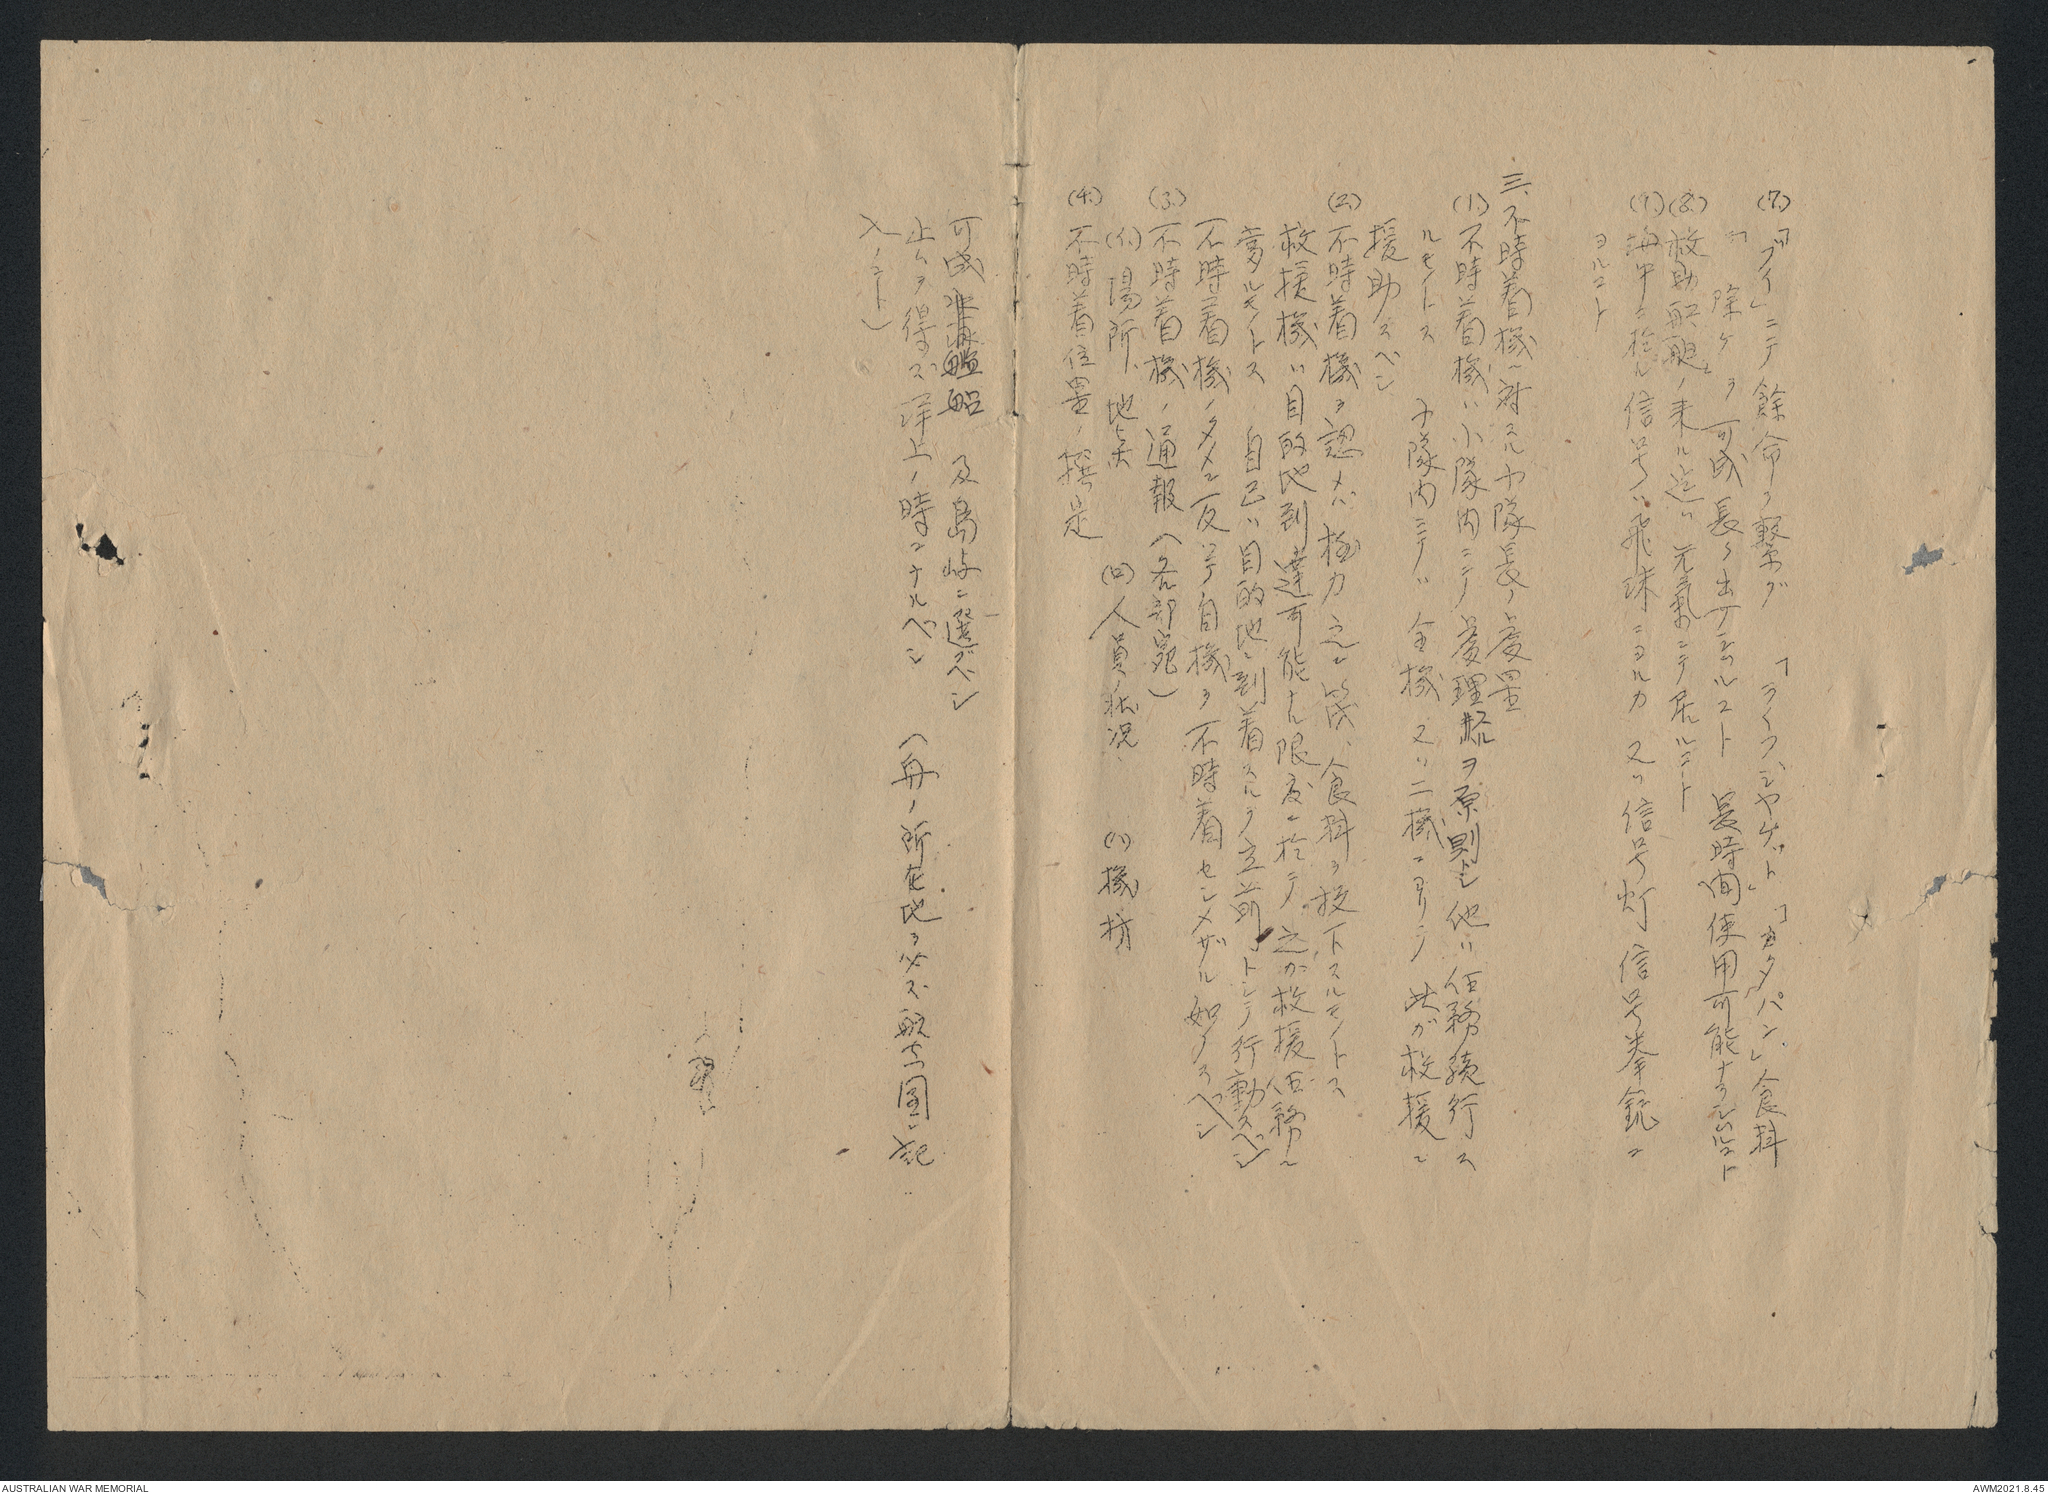 (7.)「ブイ」ニテ餘命ヲ繋グ 「ライフジヤケット」「カタパン」食料
除ケヲ可成長ク出サシムルコト 長時間使用可能ナラシムルコト
(8.)救助艇ノ来ル迄ハ元氣ニテ居ルコート
(9.)海中ニ於ル信号ハ飛沫ニヨルカ又ハ信号灯信号拳銃ニ
ヨルコト
三、不時着機ニ対スル中隊長ノ處置
(1.)不時着機ハ小隊内ニテ處理スルヲ原則トシ他ハ任務続行ス
ルモノトス 小隊内ニテハ全機又ハ二機ニヨリテ此ガ救援ニ
援助スベシ
(2.)不時着機ヲ認メバ極力之ニ 食料ヲ投下スルモノトス
救援機ハ目的地到達可能ナル限度ニ於テ之が救援任務ニ
當ルモノトス 自己ハ目的地ニ到着スルヲ立前トシテ行動スベシ
不時着機ノタメニ反ッテ自機ヲ不時着セシメザル如クスベシ
(3.)不時着機ノ通報(各部宛)
(イ)場所、地点 (ロ)人員ノ状況 (ハ)機材
(4.)不時着位置ノ撰定
可成 艦船 及島嶼ニ選ブベシ (舟ノ所在地ヲ必ズ航空図ニ記
止ムヲ得ズ洋上ノ時ニナルベシ
入ノコト)
AUSTRALIAN WAR MEMORIAL
AWM2021.8.45